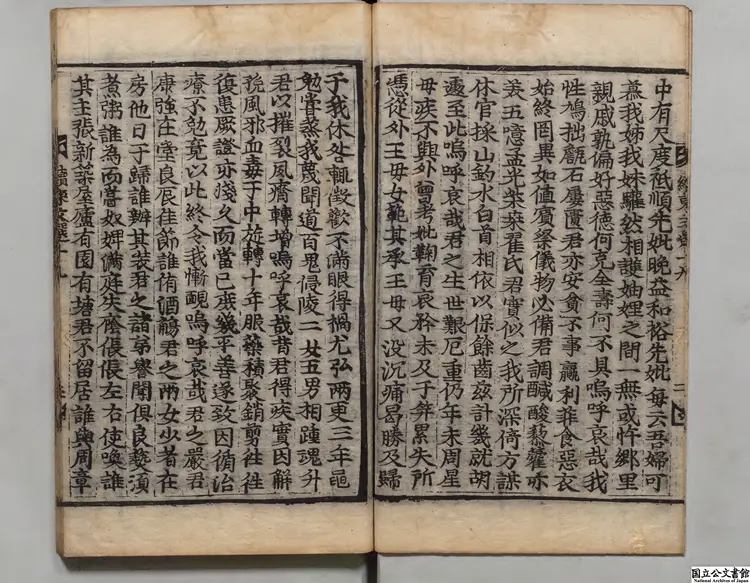 中有尺度祗順先妣晚益和裕先妣每云吾婦可
慕我姊我妹驩然相謔妯娌之間一無或忤鄉里
親戚孰偏好惡德何克全壽何不具嗚呼哀哉我
性鳩拙甔石屢匱君亦安貧不事贏利菲食惡衣
始終罔異如値屬祭儀物必備君調醎酸藜藿亦
羙五噫孟光柴桑翟氏君實似之我所深倚方謀
休官採山釣水白首相依以保餘齒玆計幾就胡
遽至此嗚呼哀哉君之生世艱厄重仍年未周星
毋疾不興外曾考妣鞠育哀矜未及于笄累失所
馮從外王毋女範其承王毋又没沉痛曷勝及歸
續東文選十九
二
于我休咎輒徵歡不滿眼得禍尤弘兩吏三年黽
勉甞蒸我幾聞道百鬼侵陵二女五男相踵魂升
君以摧裂風痟轉增嗚呼哀哉昔君得疾實因解
娩風邪血毒于中旋轉十年服藥積聚銷剪徃徃
復患厥證亦淺久而當已庶幾平善遂致因循治
療不勉竟以此終令我慚靦嗚呼哀哉君之嚴君
康強在堂良辰佳節誰侑酒觴君之兩女少者在
房他日于歸誰辦其裝君之諸舅譽聞俱良甖湏
煮粥誰為而甞奴婢備庭失庇倀倀左右使喚誰
其主張新築屋廬有園有塘君不留居誰與周章
續東文選十九
国立公文書館
National Archives of Japan